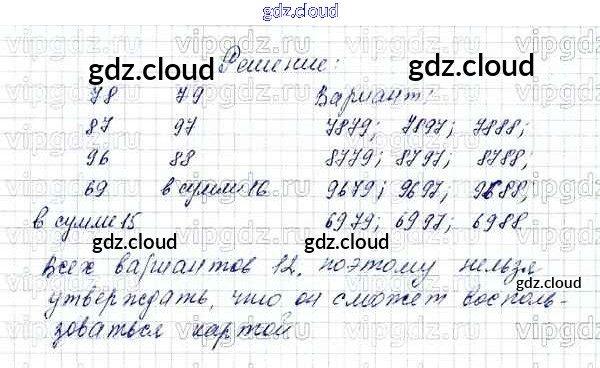 gdz.cloud
Решение:
gdz.cloud gdz.cloud
78 79 Вариант:
87 97 7879; 7897; 7888;
96 88 8779; 8797; 8788,
69 в сумме 16 9679; 9697; 9688,
в сумме 15 6979; 6997; 6988
gdz.cloud gdz.cloud
Всех вариантов 12, поэтому нельзя
утверждать, что он сможет восполь-
зоваться картой
gdz.cloud gdz.cloud